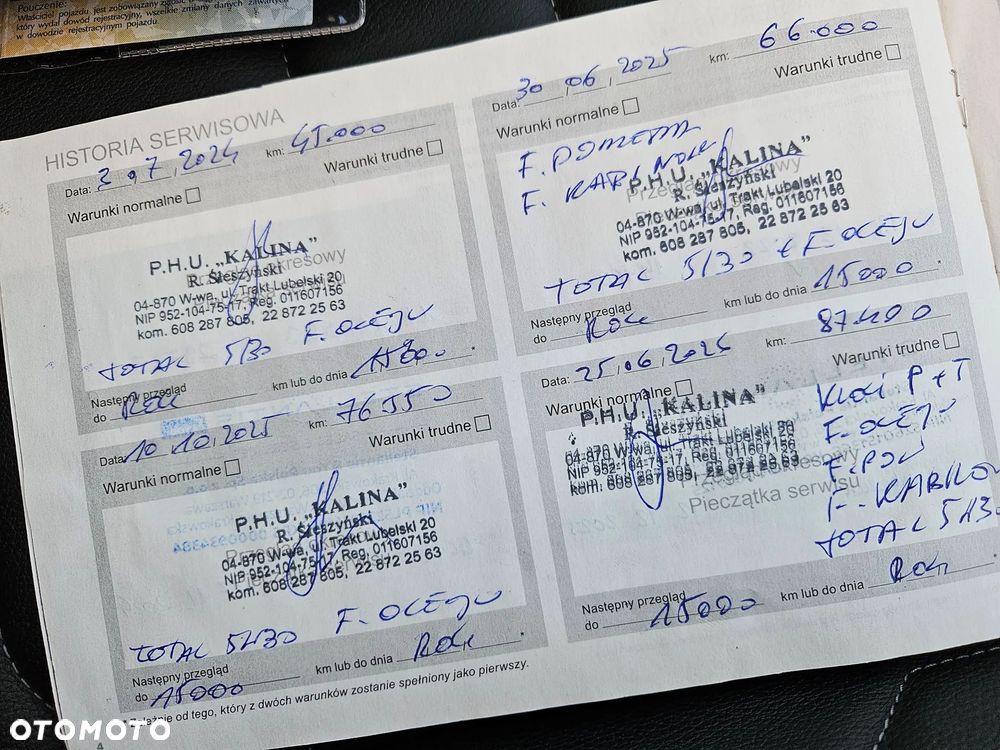 Pouczenie:
Właściciel pojazdu jest zobowiązany zgłosić
który wydał dowód rejestracyjny, wszelkie zmiany danych zawartych
w dowodzie rejestracyjnym pojazdu.
HISTORIA SERWISOWA
Data: 3.07.2024 km: 45.000
Warunki normalne Warunki trudne
P.H.U. „KALINA”
R. Sieszyński
04-870 W-wa, ul. Trakt Lubelski 20
NIP 952-104-75-17, Reg. 011607156
kom. 608 287 805, 22 872 25 63
TOTAL 5/30 F. OLEJU
Następny przegląd
do Rok km lub do dnia 15000
Data: 10.10.2025 km: 76550
Warunki normalne Warunki trudne
P.H.U. „KALINA”
R. Sieszyński
04-870 W-wa, ul. Trakt Lubelski 20
NIP 952-104-75-17, Reg. 011607156
kom. 608 287 805, 22 872 25 63
TOTAL 5W30 F. OLEJU
Następny przegląd
do 15000 km lub do dnia Rok
Zależnie od tego, który z dwóch warunków zostanie spełniony jako pierwszy.
4
Data: 30.06.2025 km: 66.000
Warunki normalne Warunki trudne
F. POWIETRZA
F. KABINOWY
P.H.U. „KALINA”
R. Sieszyński
04-870 W-wa, ul. Trakt Lubelski 20
NIP 952-104-75-17, Reg. 011607156
kom. 608 287 805, 22 872 25 63
TOTAL 5/30 + F. OLEJU
Następny przegląd
do Rok km lub do dnia 15000
Data: 25.06.2026 km: 87.100
Warunki normalne Warunki trudne
P.H.U. „KALINA”
R. Sieszyński
04-870 W-wa, ul. Trakt Lubelski 20
NIP 952-104-75-17, Reg. 011607156
kom. 608 287 805, 22 872 25 63
Pieczątka serwisu
Kloci P + T
F. OLEJU
F. POW
F. KABINO
TOTAL 5W30
Następny przegląd
do 15000 km lub do dnia Rok
OTOMOTO